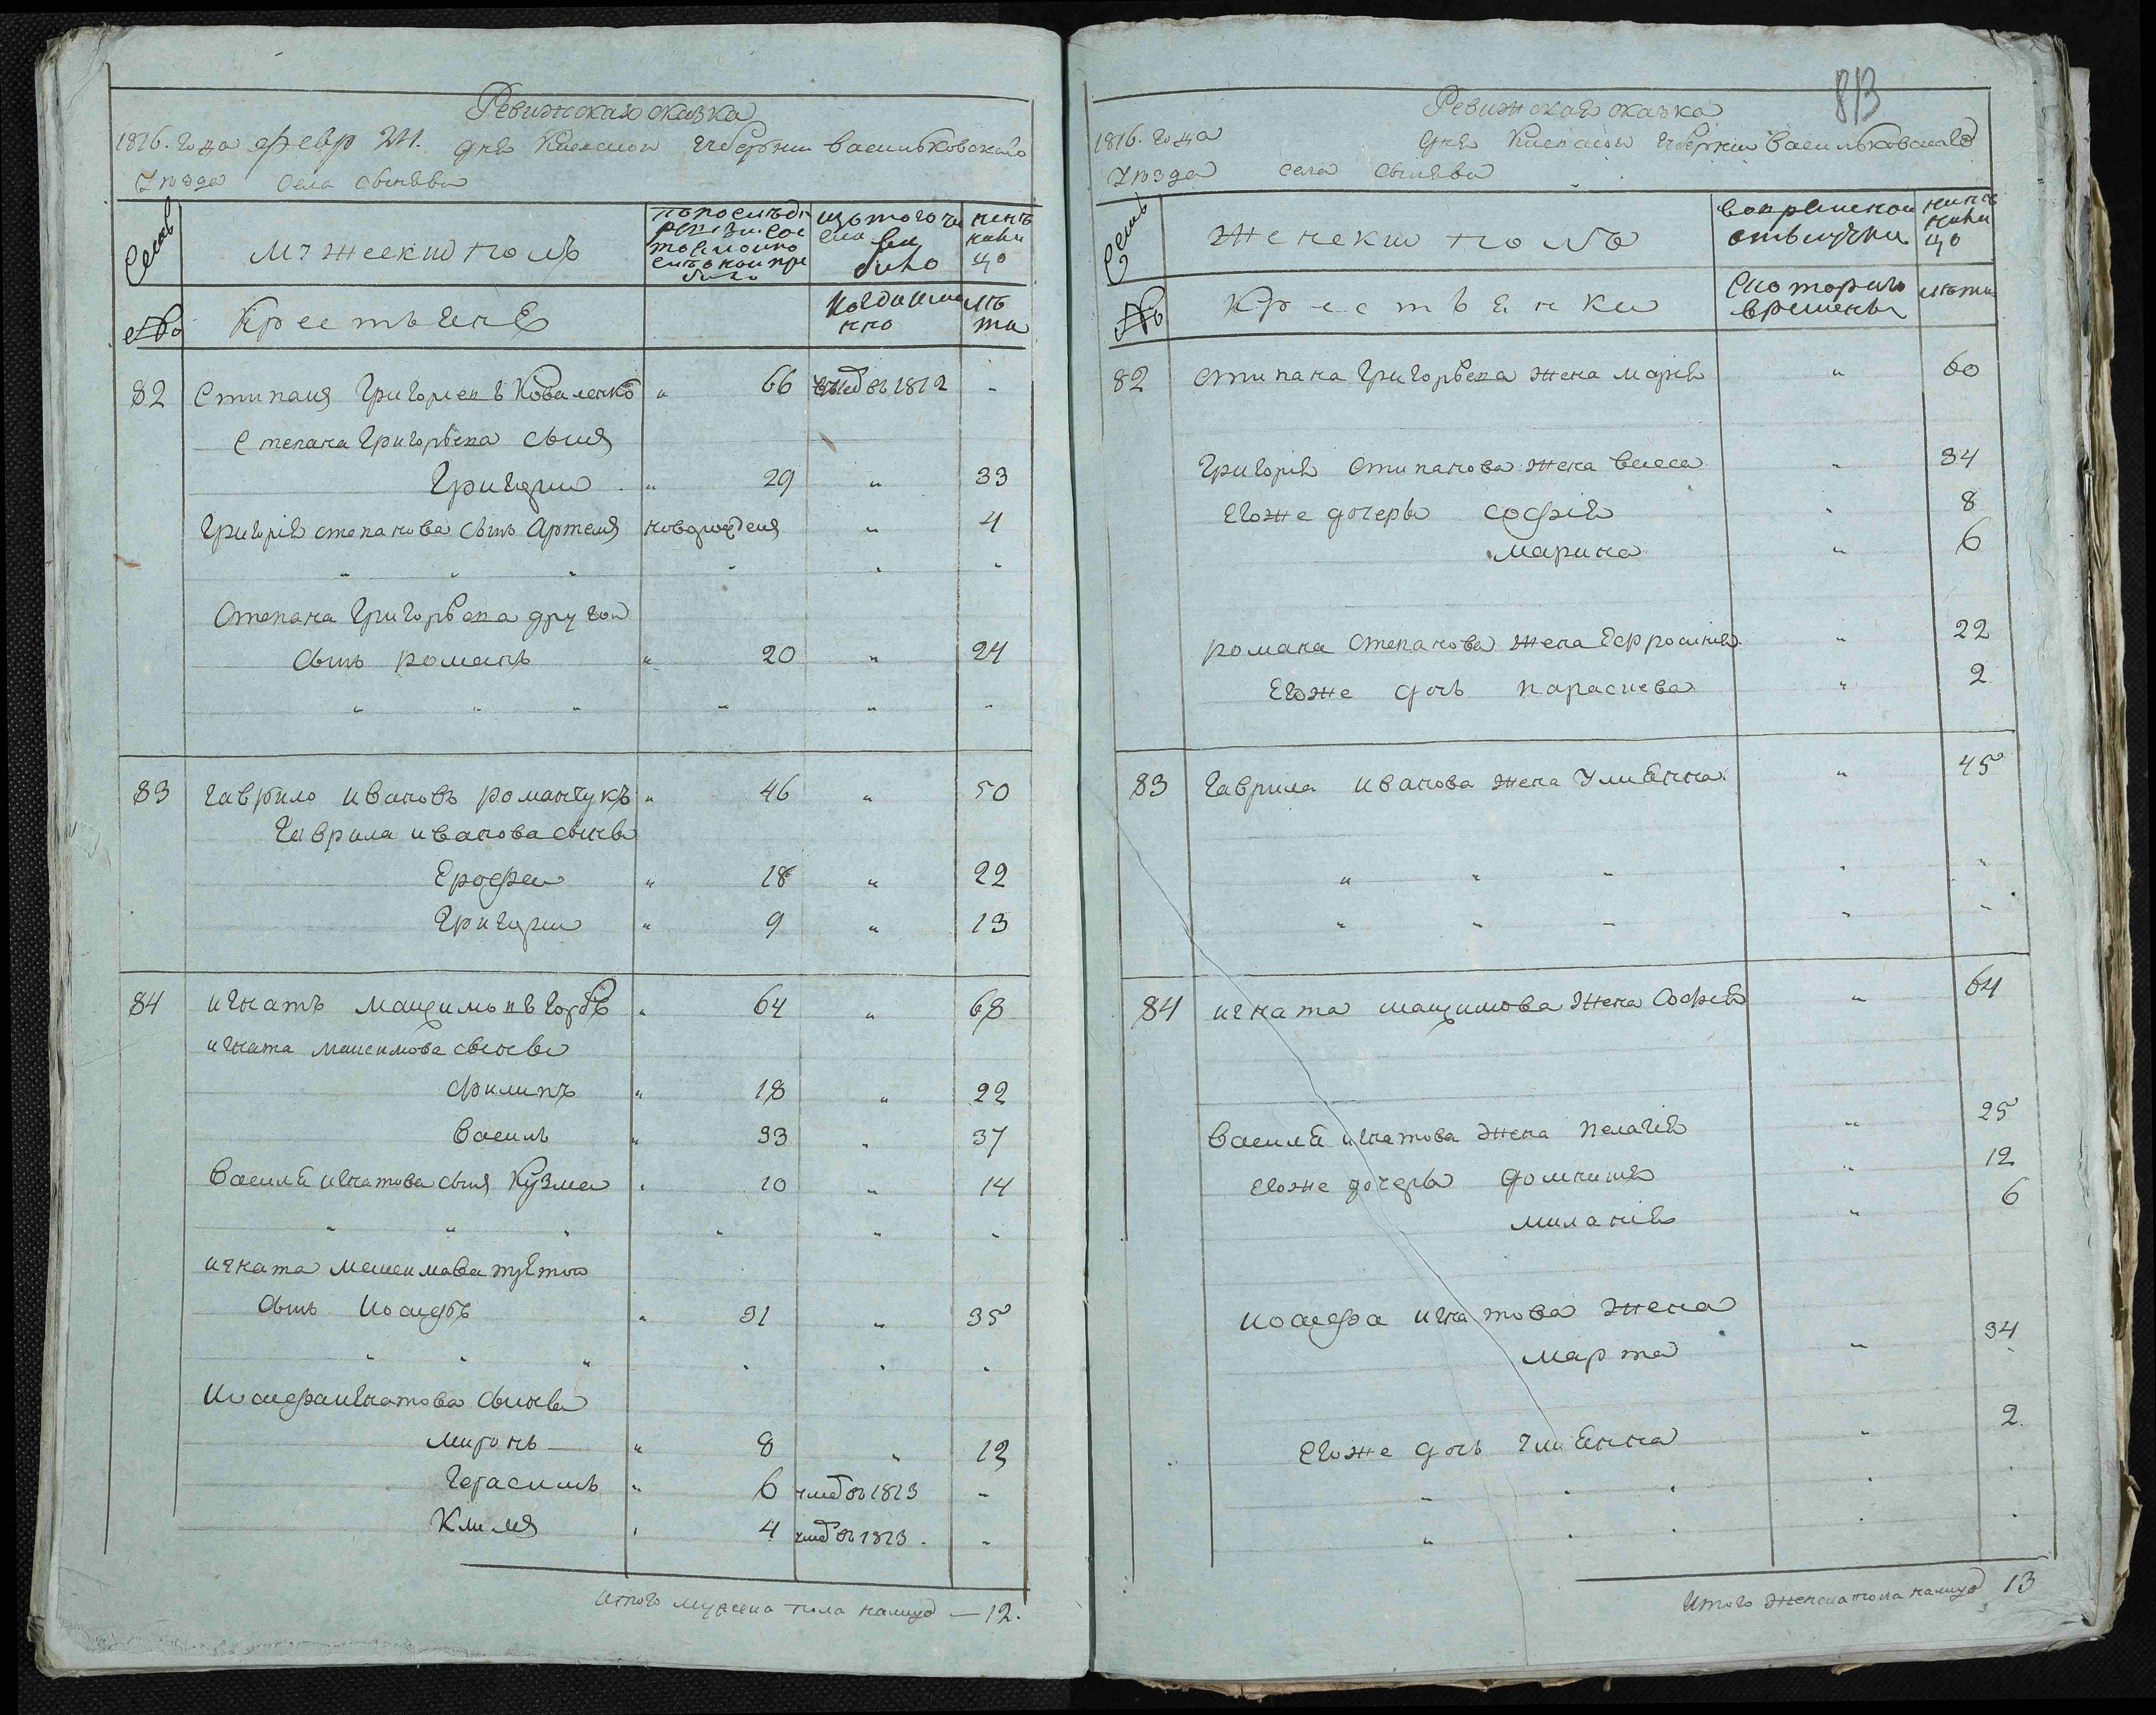 Ревижская сказка
1816. года февр 21. дня Киевской губернии васильковского
уезда села
Семьи
мужеский полъ
изъ того числа выбыло
ныне налицо
№
крестьяне
когда именно
лета
82 Стипаня Григориевъ Коваленко " 66 умеръ въ 1812 -
Степана Григорьева сыня
Григории " 29 " 33
Григорія степанова сынъ Артемя новорожденя " 4
Степана Григорьева другои
сынъ романъ " 20 " 24
83 гаврило ивановъ романчукъ " 46 " 50
Гаврила иванова сыновья
Ерофеи " 18 " 22
Григории " 9 " 13
84 игнатъ мацимовъ горбъ " 64 " 68
игната максимова сыновья
филипъ " 18 " 22
василь " 33 " 37
василя игнатова сыня Кузма " 10 " 14
игната максимова третои
сынъ иосифъ " 31 " 35
иосифа игнатова сыновья
миронъ " 8 " 12
герасимъ " 6 умеръ въ 1813 -
Климя " 4 умеръ въ 1813 -
итого мужеска пола налицо — 12.
813
Ревижская сказка
1816. года дня Киевской губернии васильковского
уезда села
Семьи
женский полъ
во временной отлучки
ныне налицо
№
крестьянки
с которого времени
лета
82 стипана григорьева жена марія " 60
григорія стипанова жена васса " 34
его же дочеры софія " 8
марина " 6
романа степанова жена Ефросинія " 22
его же дочь параскева " 2
83 гаврила иванова жена улиянна " 45
84 игната мацимова жена софія " 64
василя игнатова жена пелагія " 25
его же дочеры домникия " 12
миланія " 6
иосифа игнатова жена
марта " 34
его же дочь улиянна " 2
итого женска пола налицо 13